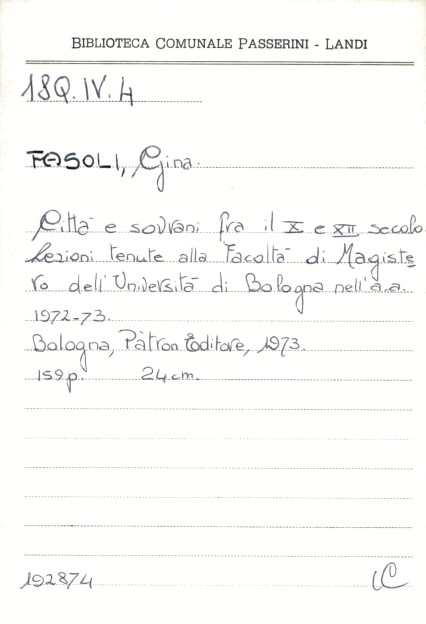 BIBLIOTECA COMUNALE PASSERINI - LANDI
18Q.IV.4
FASOLI, Gina.
Città e sovrani fra il X e XII secolo.
Lezioni tenute alla Facoltà di Magiste
ro dell'Università di Bologna nell'a.a.
1972-73.
Bologna, Pàtron Editore, 1973.
159p. 24cm.
192874 C